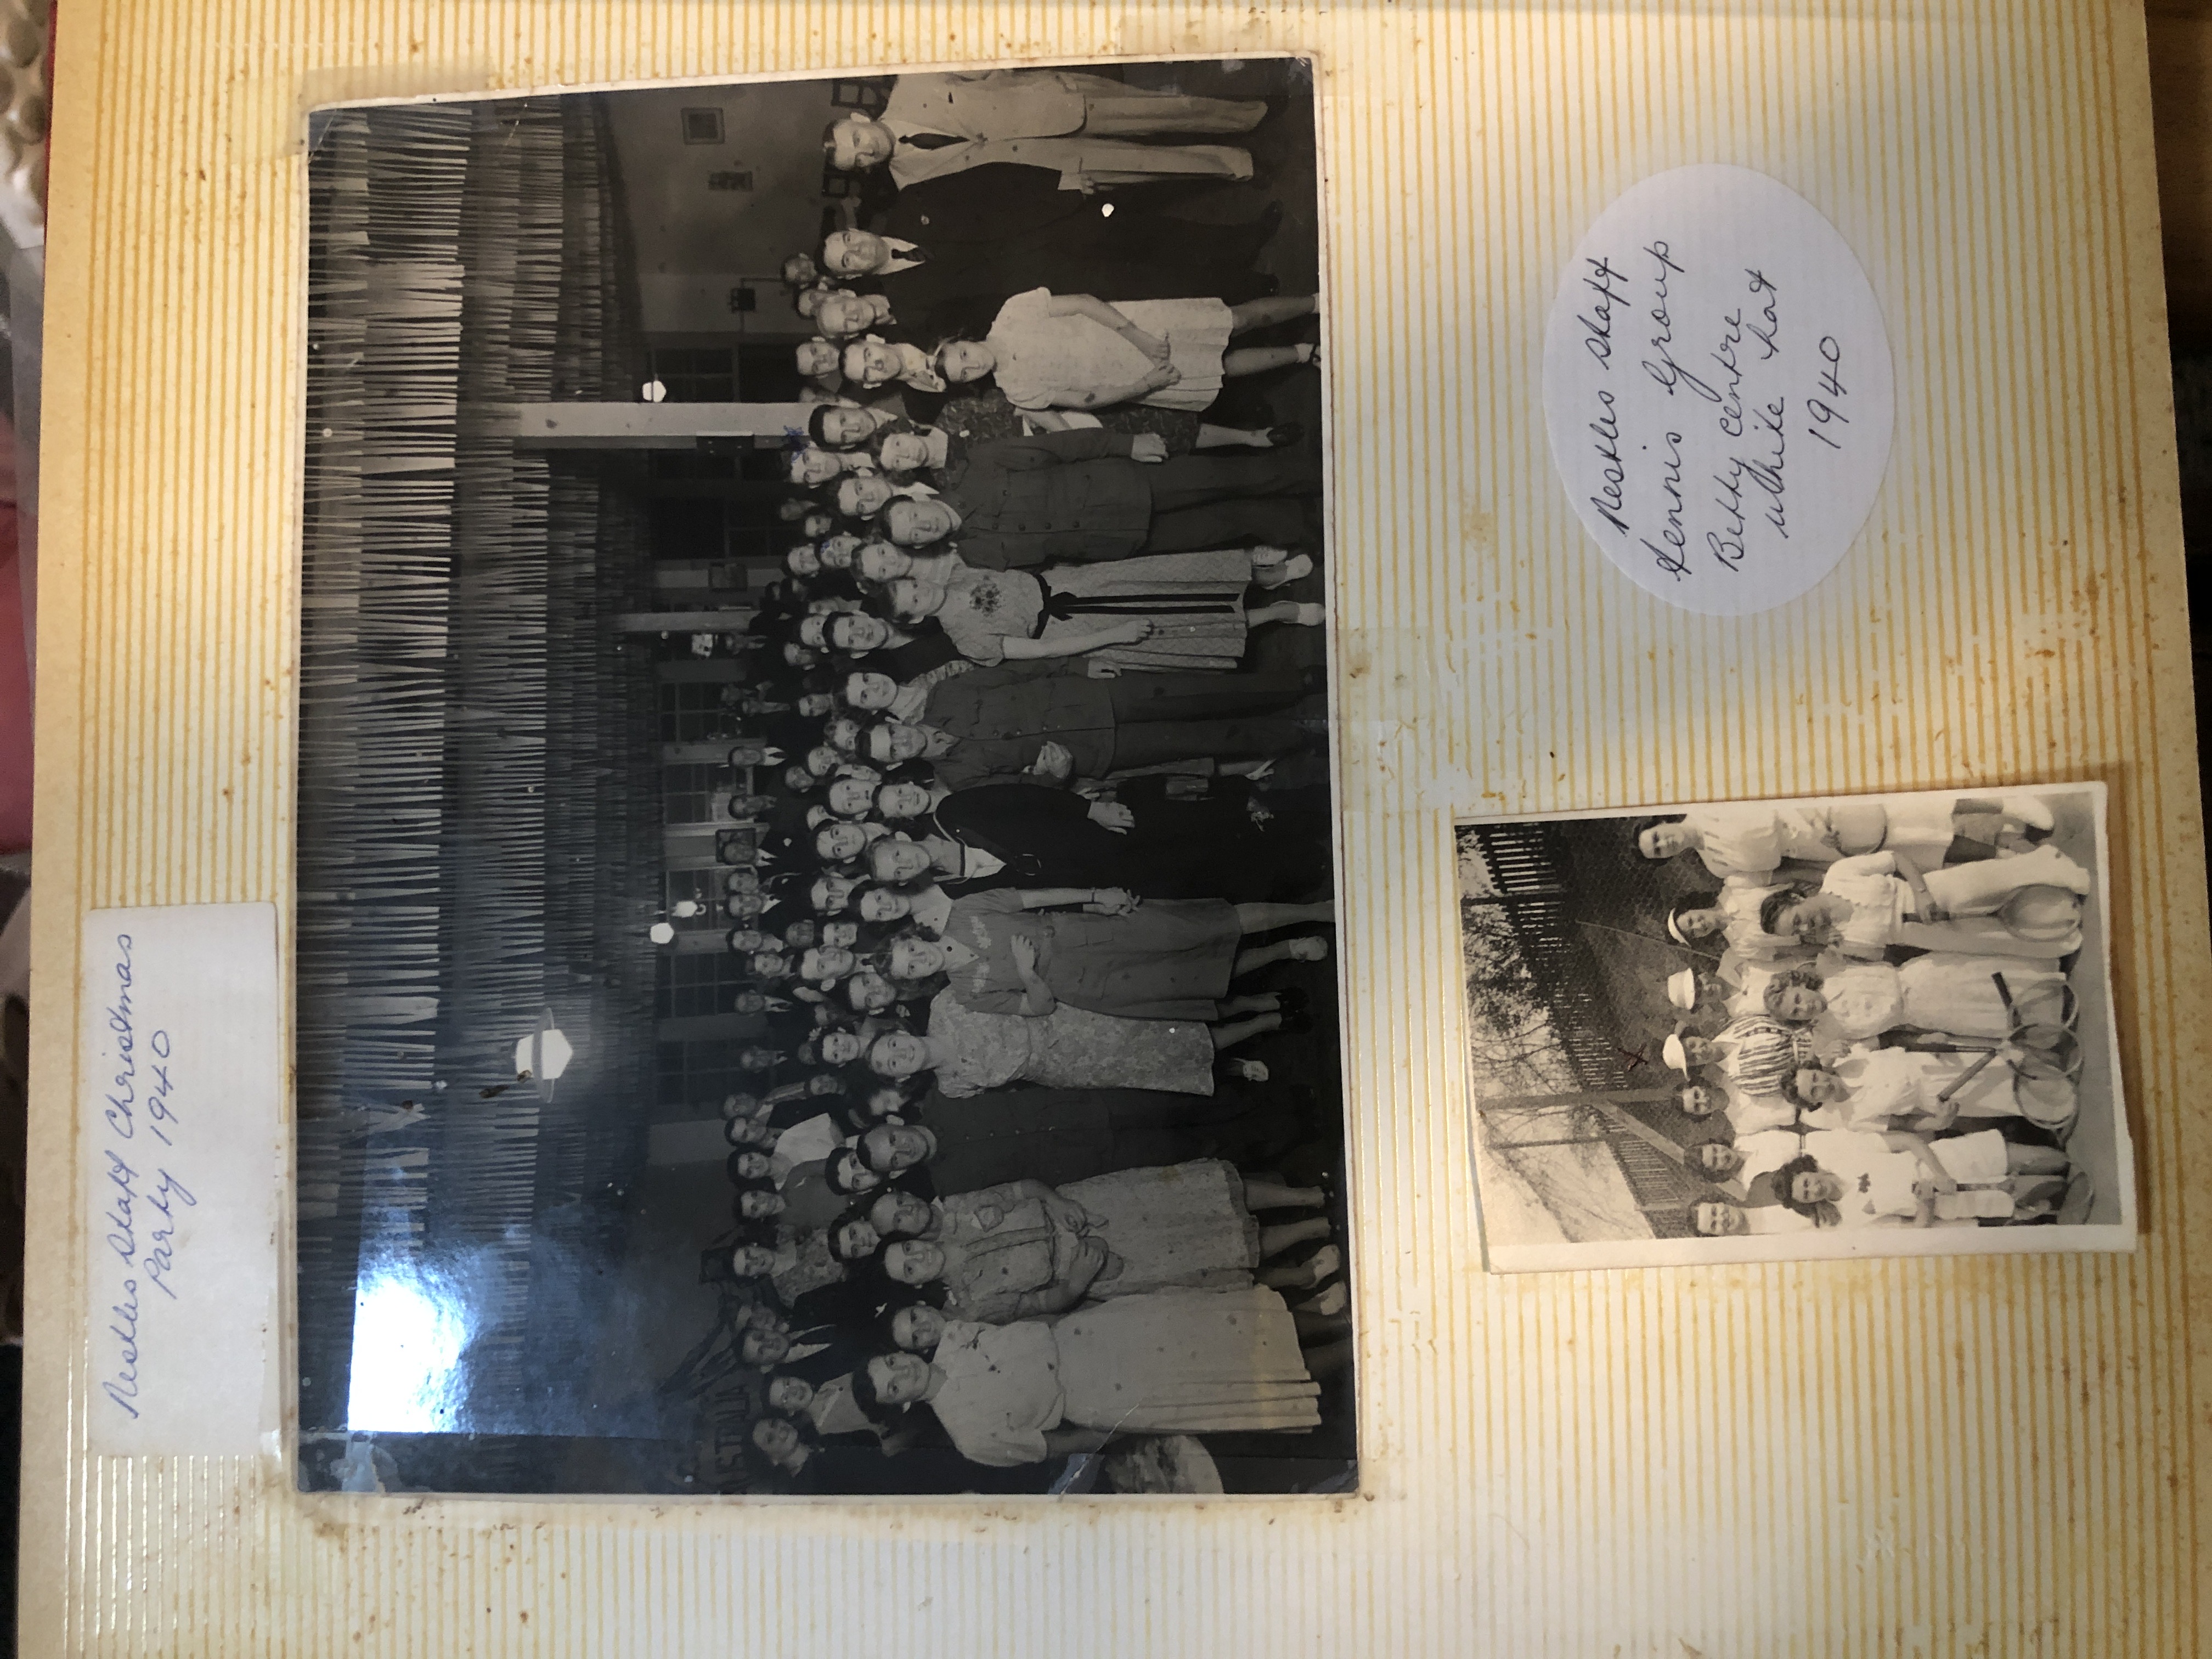 Nestles Staff Christmas
Party 1940
AUSTRALIA
X
Nestles Staff
tennis Group
Betty centre
white hat
1940